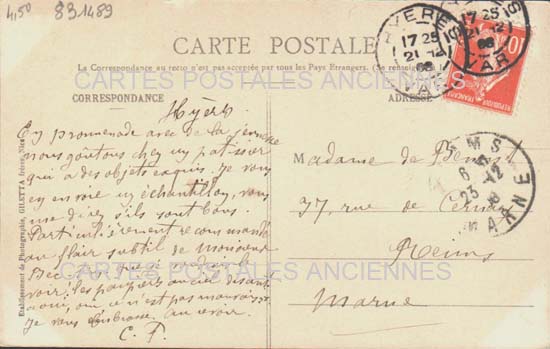 4,50 831489
CARTE POSTALE
La Correspondance au recto n'est pas acceptée par tous les Pays Etrangers. (Se renseigner
CARTES POSTALES ANCIENNES
CORRESPONDANCE
ADRESSE
HYERES
17 25
21 -12
08
VAR
HYERES
17 25
21 -12
08
VAR
10
REIMS
6
23 -12
MARNE
Hyères
En promenade avec de la jeunesse
nous goûtons chez un patissier
qui a des objets exquis. Je vous
en envoie un échantillon, vous
me direz s'ils sont bons.
Particulièrement recommandé
au flair subtil de Monsieur
voir! les au ciel disant
que ce n'est pas mauvais
Je vous embrasse. Au revoir.
C. P.
Madame de
37, rue de
Reims
Marne
CARTES POSTALES ANCIENNES
Etablissement de Photographie, GILETTA frères, Nice